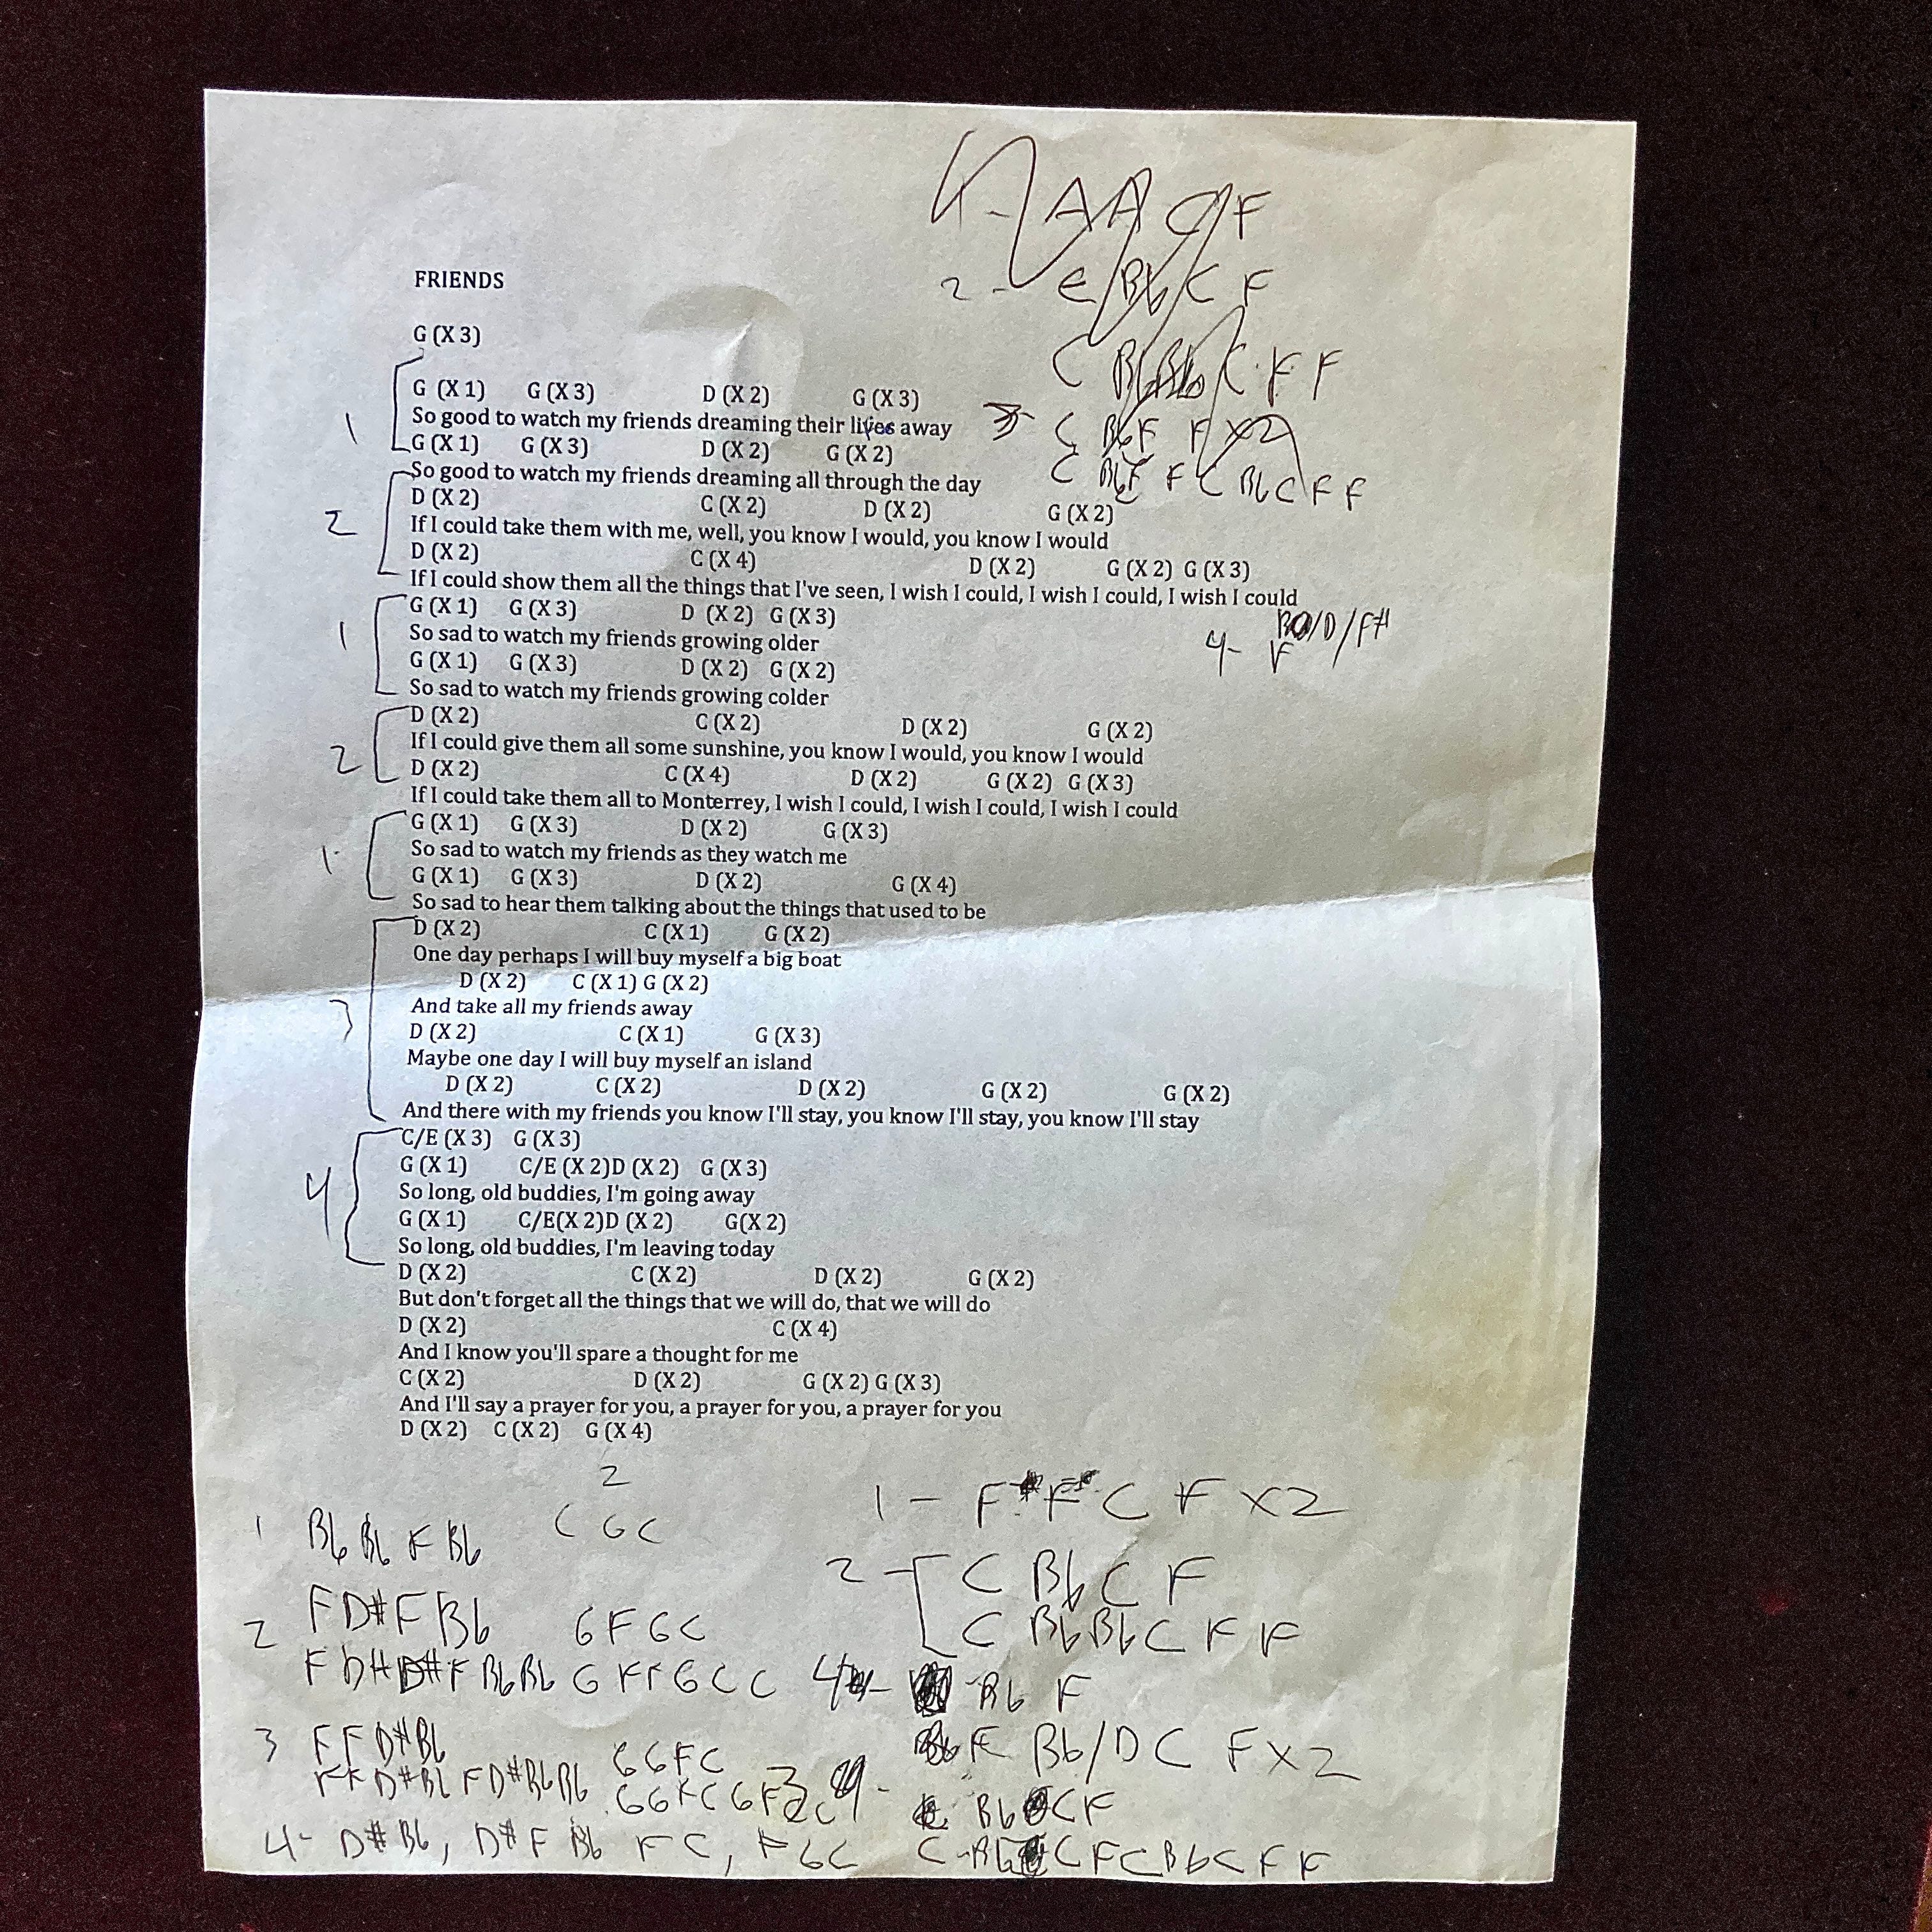 4- A A C F
2- C Bb C F
FRIENDS
C Bb Bb C F F
G (X 3)
G (X 1) G (X 3) D (X 2) G (X 3)
So good to watch my friends dreaming their lives away
3- C Bb F F X2
1
G (X 1) G (X 3) D (X 2) G (X 2)
C Bb F F C Bb C F F
So good to watch my friends dreaming all through the day
D (X 2) C (X 2) D (X 2) G (X 2)
2
If I could take them with me, well, you know I would, you know I would
D (X 2) C (X 4) D (X 2) G (X 2) G (X 3)
If I could show them all the things that I've seen, I wish I could, I wish I could, I wish I could
G (X 1) G (X 3) D (X 2) G (X 3)
1
So sad to watch my friends growing older
/D/F#
4- F
G (X 1) G (X 3) D (X 2) G (X 2)
So sad to watch my friends growing colder
D (X 2) C (X 2) D (X 2) G (X 2)
2
If I could give them all some sunshine, you know I would, you know I would
D (X 2) C (X 4) D (X 2) G (X 2) G (X 3)
If I could take them all to Monterrey, I wish I could, I wish I could, I wish I could
G (X 1) G (X 3) D (X 2) G (X 3)
1
So sad to watch my friends as they watch me
G (X 1) G (X 3) D (X 2) G (X 4)
So sad to hear them talking about the things that used to be
D (X 2) C (X 1) G (X 2)
One day perhaps I will buy myself a big boat
D (X 2) C (X 1) G (X 2)
3
And take all my friends away
D (X 2) C (X 1) G (X 3)
Maybe one day I will buy myself an island
D (X 2) C (X 2) D (X 2) G (X 2) G (X 2)
And there with my friends you know I'll stay, you know I'll stay, you know I'll stay
C/E (X 3) G (X 3)
G (X 1) C/E (X 2)D (X 2) G (X 3)
4
So long, old buddies, I'm going away
G (X 1) C/E(X 2)D (X 2) G(X 2)
So long, old buddies, I'm leaving today
D (X 2) C (X 2) D (X 2) G (X 2)
But don't forget all the things that we will do, that we will do
D (X 2) C (X 4)
And I know you'll spare a thought for me
C (X 2) D (X 2) G (X 2) G (X 3)
And I'll say a prayer for you, a prayer for you, a prayer for you
D (X 2) C (X 2) G (X 4)
2
1 Bb Bb F Bb C G C
1 - F F C F X2
F D# F Bb G F G C
2 - C Bb C F
2
F D# D# F Bb Bb G F F G C C
C Bb Bb C F F
4 - Bb F
3 F F D# Bb G G F C
F Bb/D C F X2
F F D# Bb F D# Bb Bb G G F C G F C C
Bb C F
4- D# Bb, D# F Bb F C, F G C
C Bb C F C Bb C F F